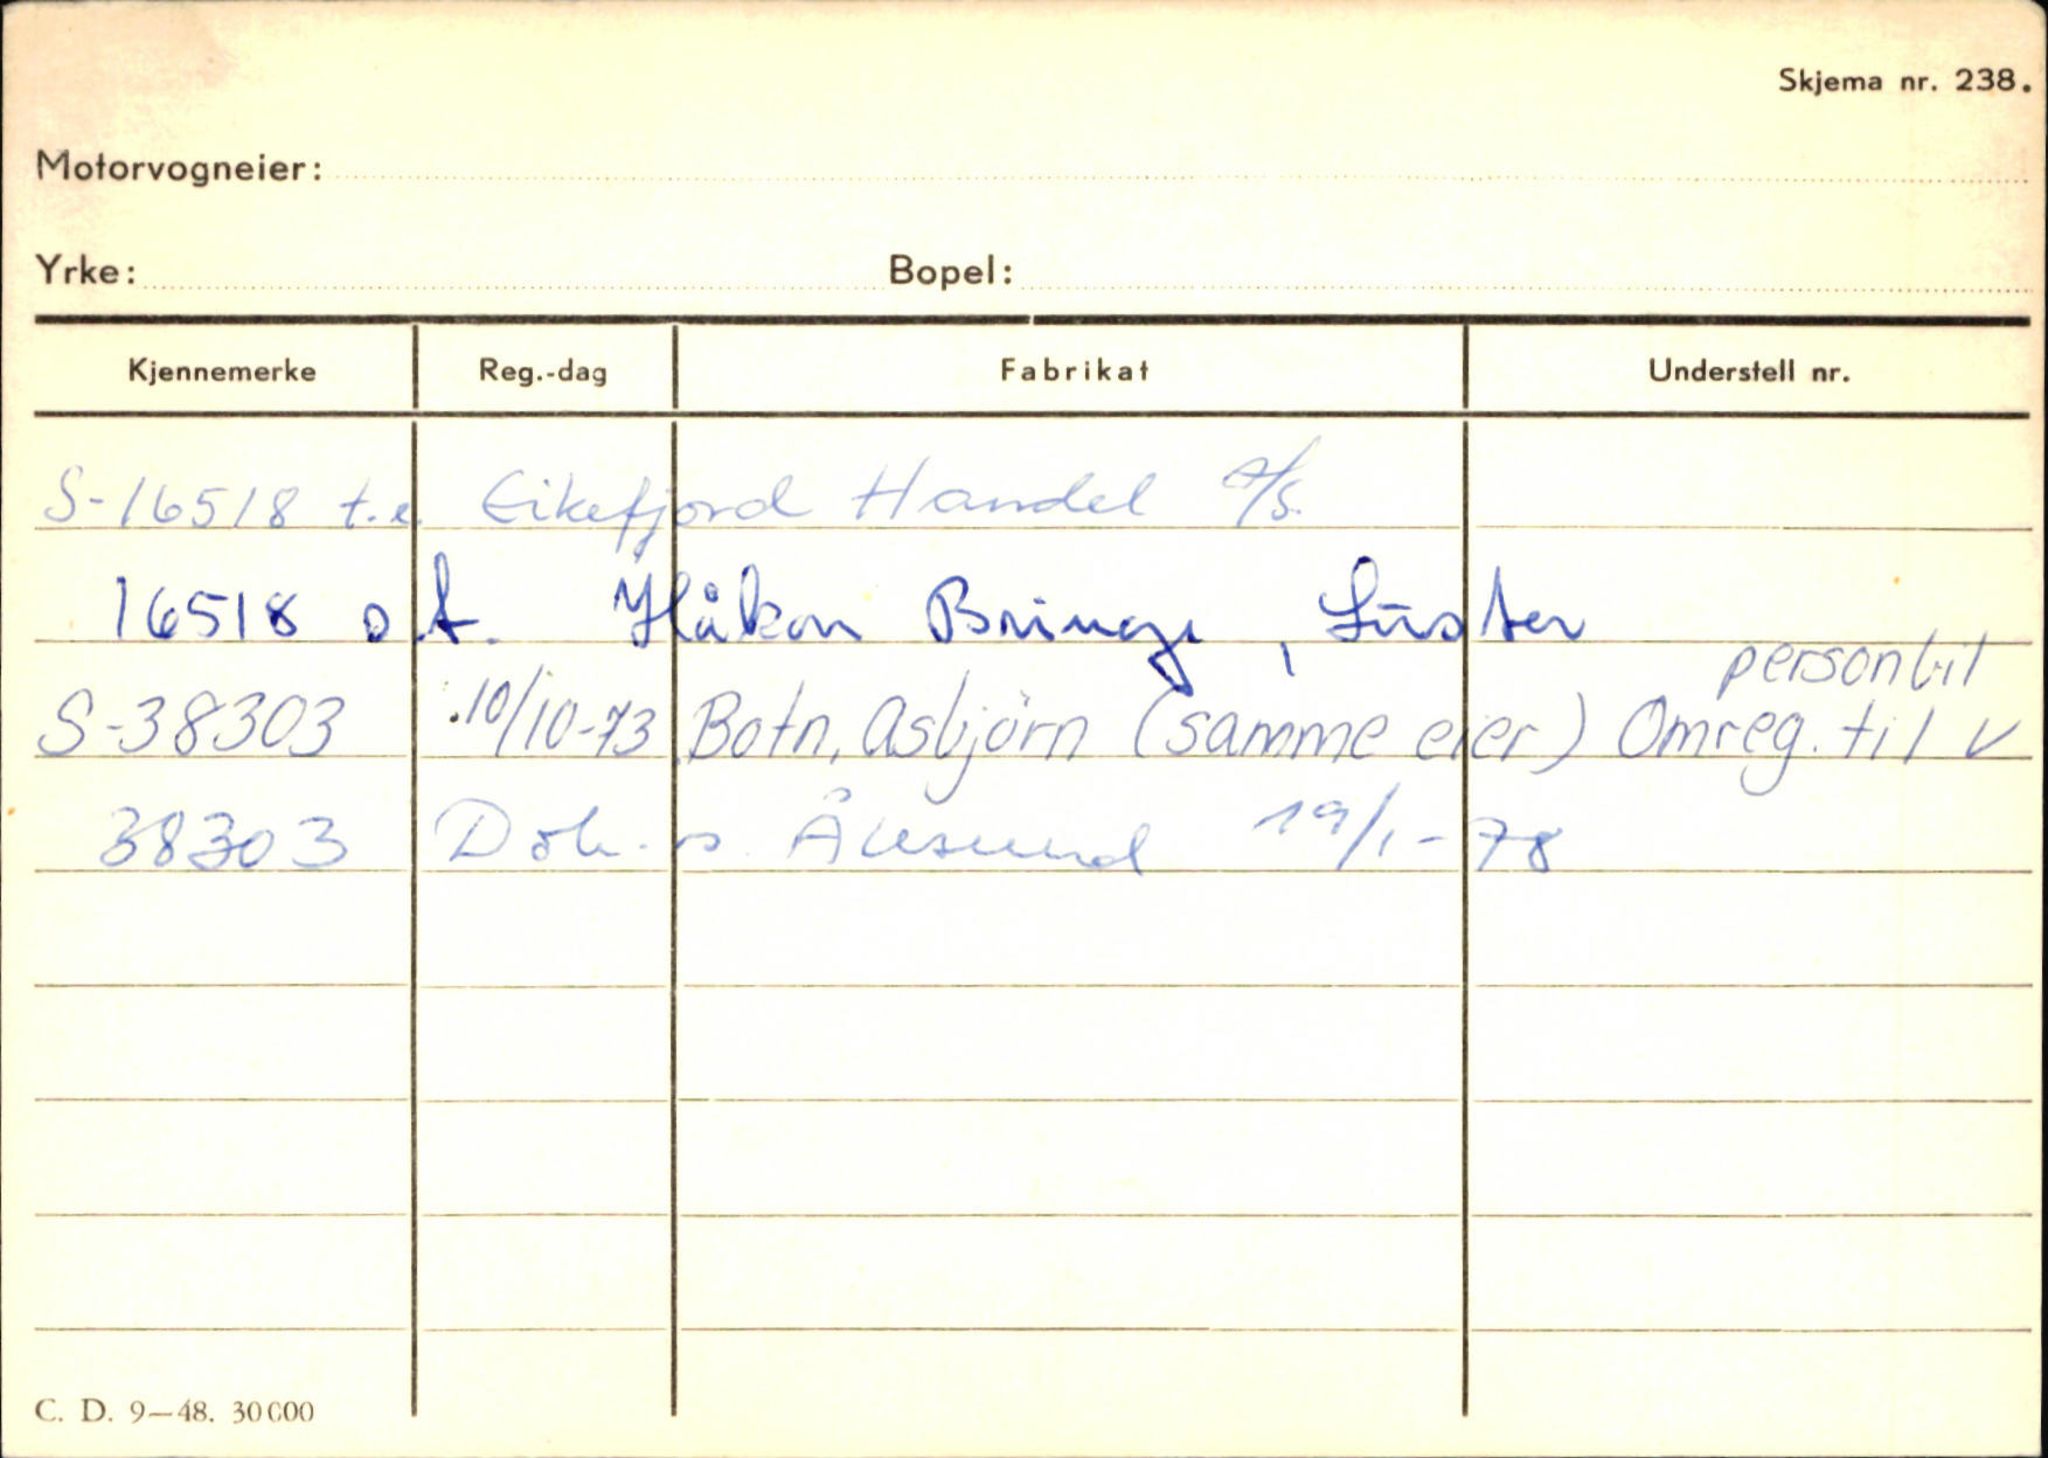 Skjema nr. 238.
Motorvogneier:
Yrke: Bopel:
Kjennemerke Reg.-dag Fabrikat Understell nr.
S-16518 t.e. Eikefjord Handel A/S.
16518 o.t. Håkon Bringe, Luster
personbil
S-38303 10/10-73 Botn, Asbjörn (samme eier) Omreg. til V
38303 19/1-78
C. D. 9—48. 30000